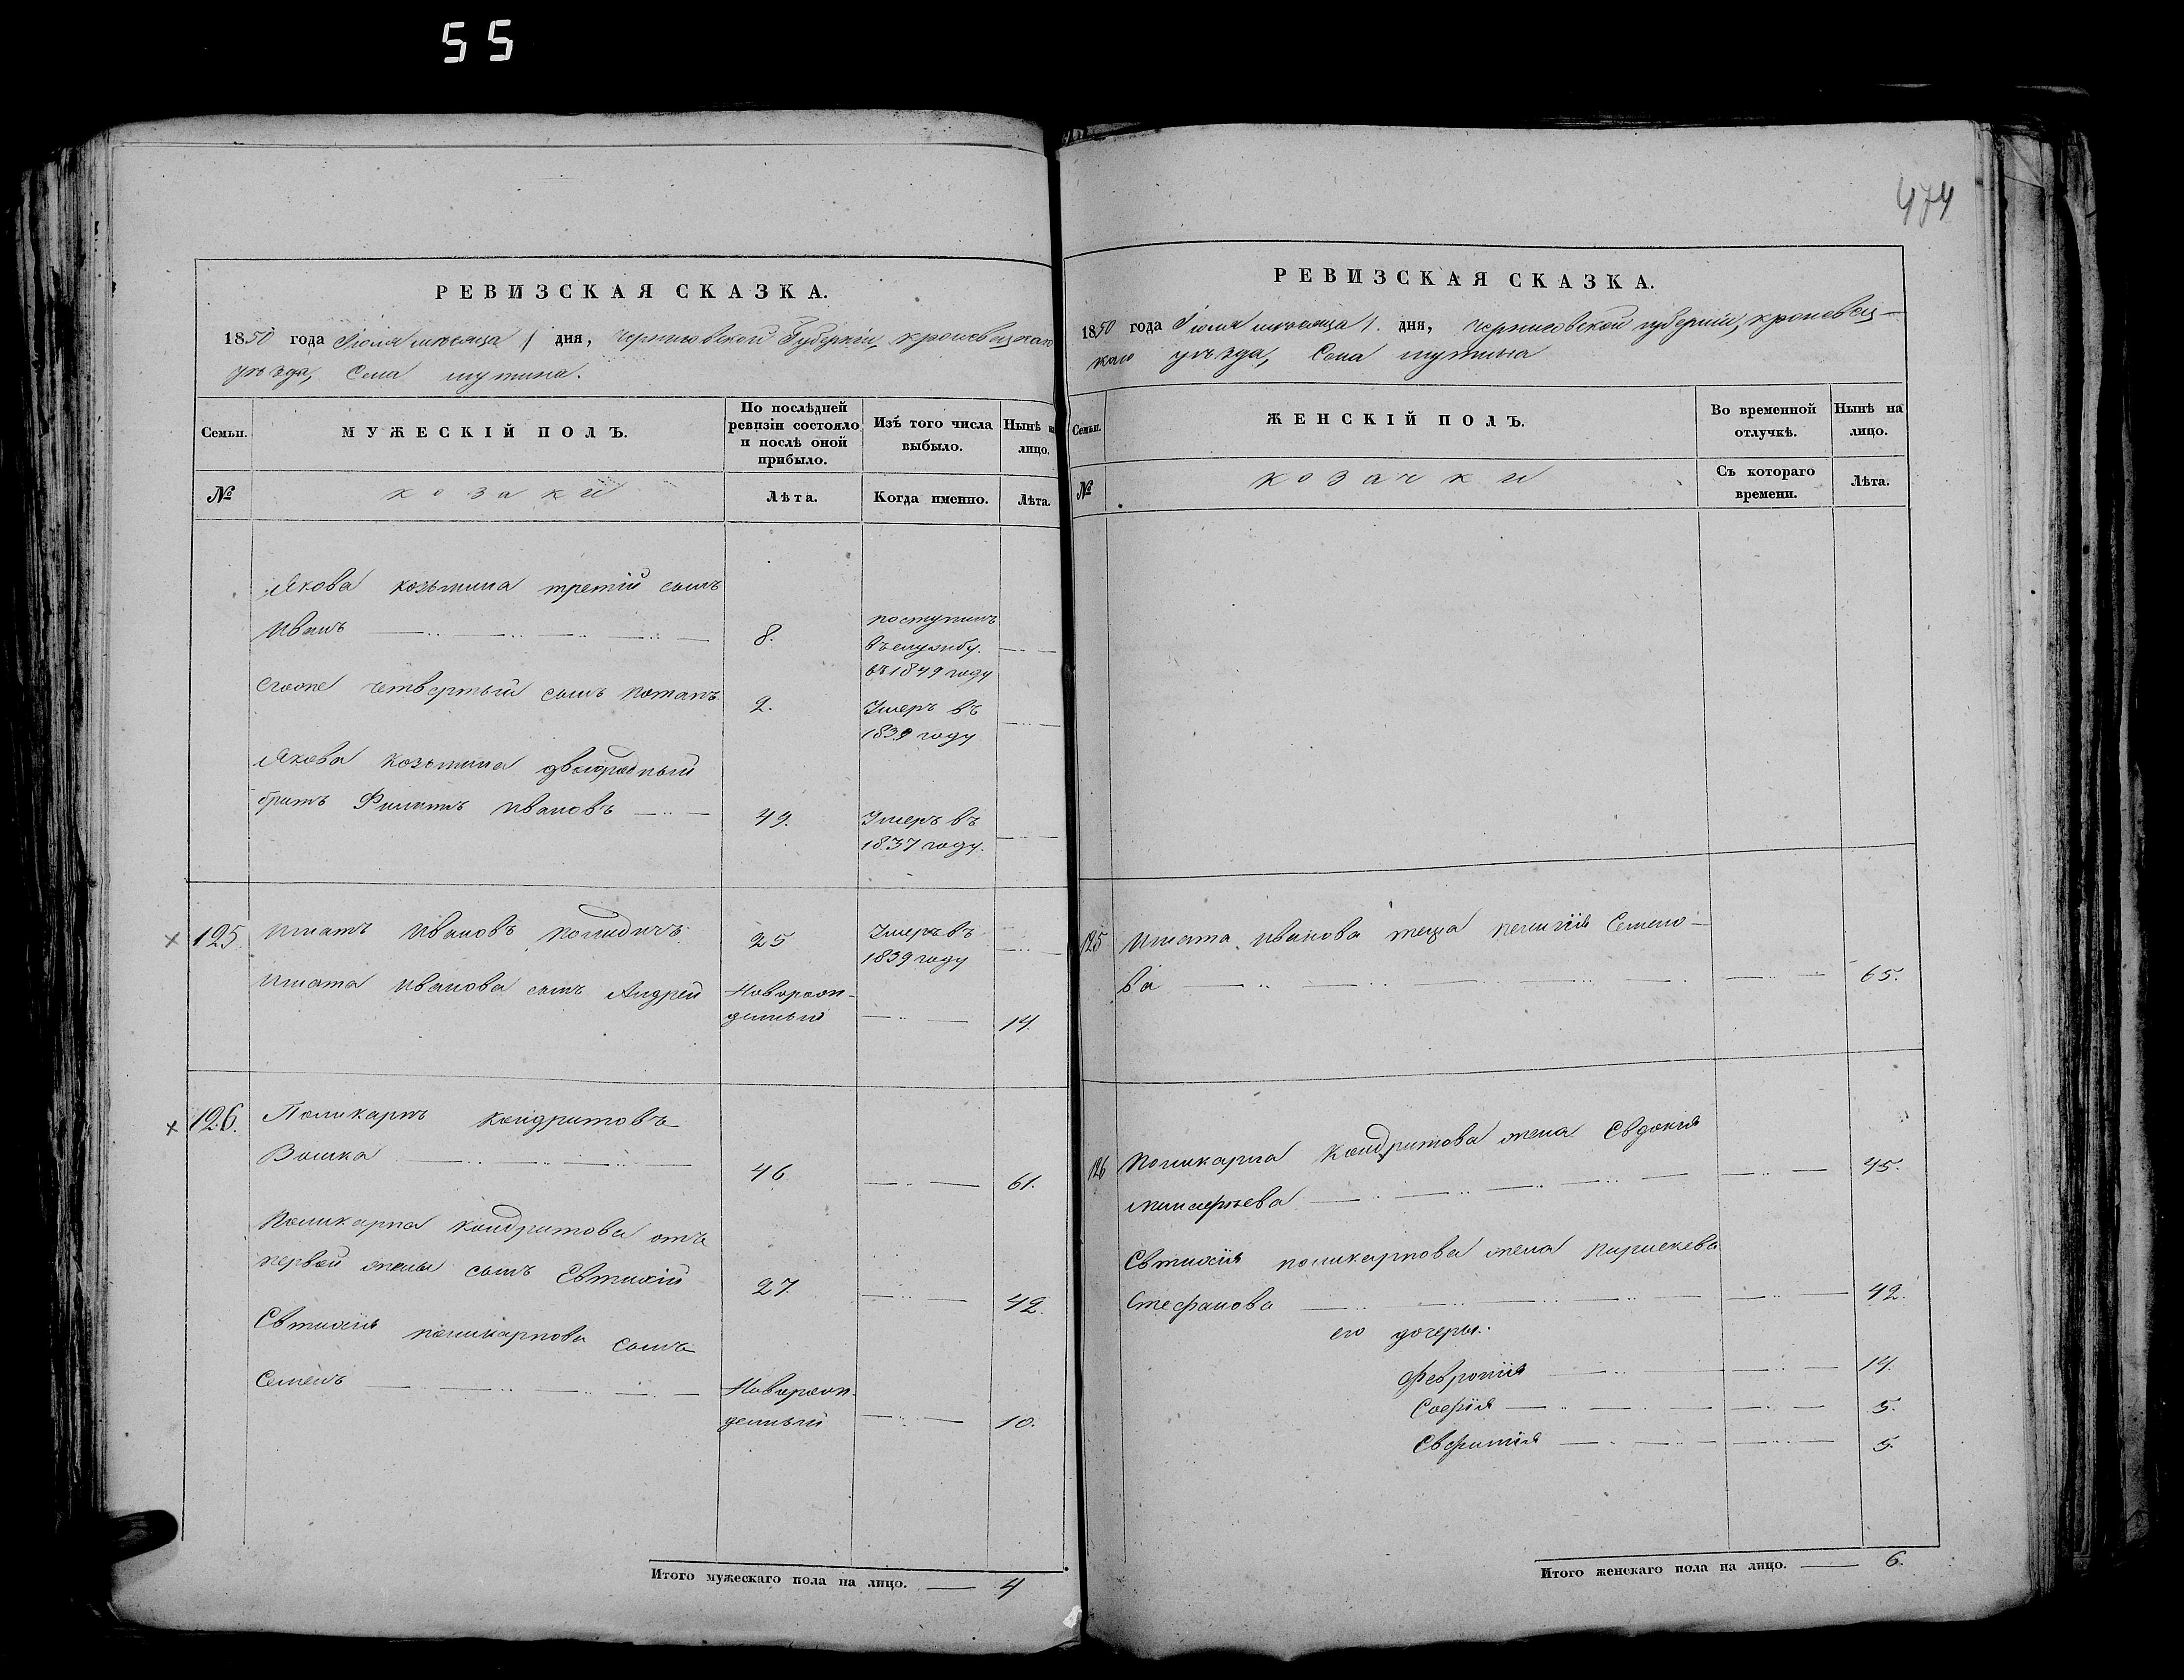 55
474
РЕВИЗСКАЯ СКАЗКА.
1850 года Іюля мѣсяца 1 дня, Черниговской Губерніи, Кролевецкаго
уѣзда, Села Мутина.
Семьи.
МУЖЕСКІЙ ПОЛЪ.
По послѣдней
ревизіи состояло
и послѣ оной
прибыло.
Изъ того числа
выбыло.
Нынѣ на
лицо.
№
козаки
Лѣта.
Когда именно.
Лѣта.
Якова Козьмина третій сынъ
Иванъ 8. поступилъ
въ службу
въ 1849 году
Егоже четвертый сынъ Потапъ 2. Умеръ въ
1839 году
Якова Козьмина двоюродный
братъ Филатъ Ивановъ 49. Умеръ въ
1837 году.
125. Игнатъ Ивановъ 25 Умеръ въ
1839 году
Игната Иванова сынъ Андрей Новорож-
денный 14.
126. Поликарпъ Кондратовъ
Вошка 46 61.
Поликарпа Кондратова отъ
первой жены сынъ Евтихій 27. 42.
Евтихія Поликарпова сынъ
Семенъ Новорож-
денный 10.
Итого мужескаго пола на лицо. 4
РЕВИЗСКАЯ СКАЗКА.
1850 года Іюля мѣсяца 1. дня, Черниговской губерніи, Кролевец-
каго уѣзда, Села Мутина
Семьи.
ЖЕНСКІЙ ПОЛЪ.
Во временной
отлучкѣ.
Нынѣ на
лицо.
№
козачки
Съ котораго
времени.
Лѣта.
125 Игната Иванова теща Пелагія Семено-
ва 65.
126 Поликарпа Кондратова жена Евдокія
45.
Евтихія Поликарпова жена Параскева
Стефанова 42.
его дочеры:
Февронія 14.
Софія 5.
Евфимія 5.
Итого женскаго пола на лицо. 6.